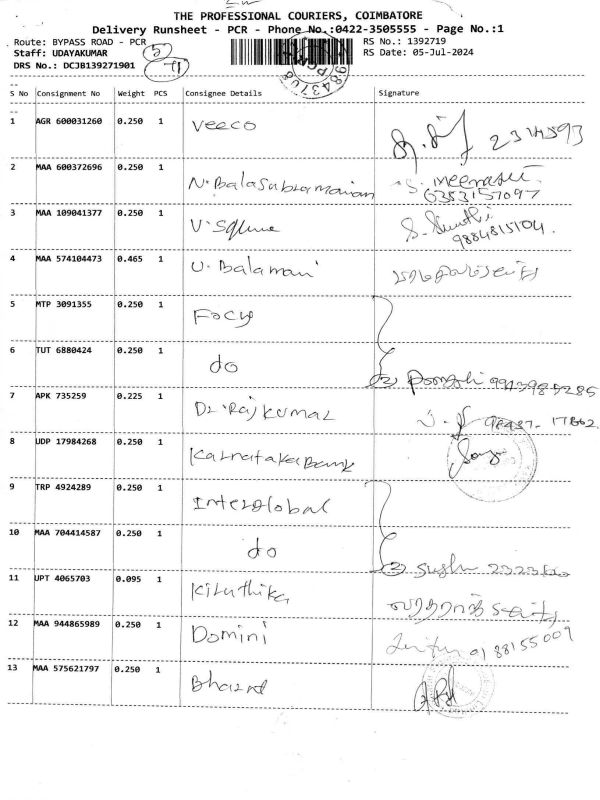 THE PROFESSIONAL COURIERS, COIMBATORE
Delivery Runsheet - PCR - Phone No.:0422-3505555 - Page No.:1
Route: BYPASS ROAD - PCR
RS No.: 1392719
Staff: UDAYAKUMAR
RS Date: 05-Jul-2024
DRS No.: DCJB139271901
S No Consignment No Weight PCS Consignee Details Signature
1 AGR 600031260 0.250 1 Veeco
2 MAA 600372696 0.250 1 N. Balasubramanian S. Meenakshi
6383157097
3 MAA 109041377 0.250 1 V. Square
9884815104.
4 MAA 574104473 0.465 1 U. Balamani
5 MTP 3091355 0.250 1 Focus
6 TUT 6880424 0.250 1 do
7 APK 735259 0.225 1 Dr. Rajkumar 98437-17862
8 UDP 17984268 0.250 1 Karnataka Bank
9 TRP 4924289 0.250 1 Interglobal
10 MAA 704414587 0.250 1 do
11 UPT 4065703 0.095 1 Kiruthika
12 MAA 944865989 0.250 1 Domini
13 MAA 575621797 0.250 1 Bharat